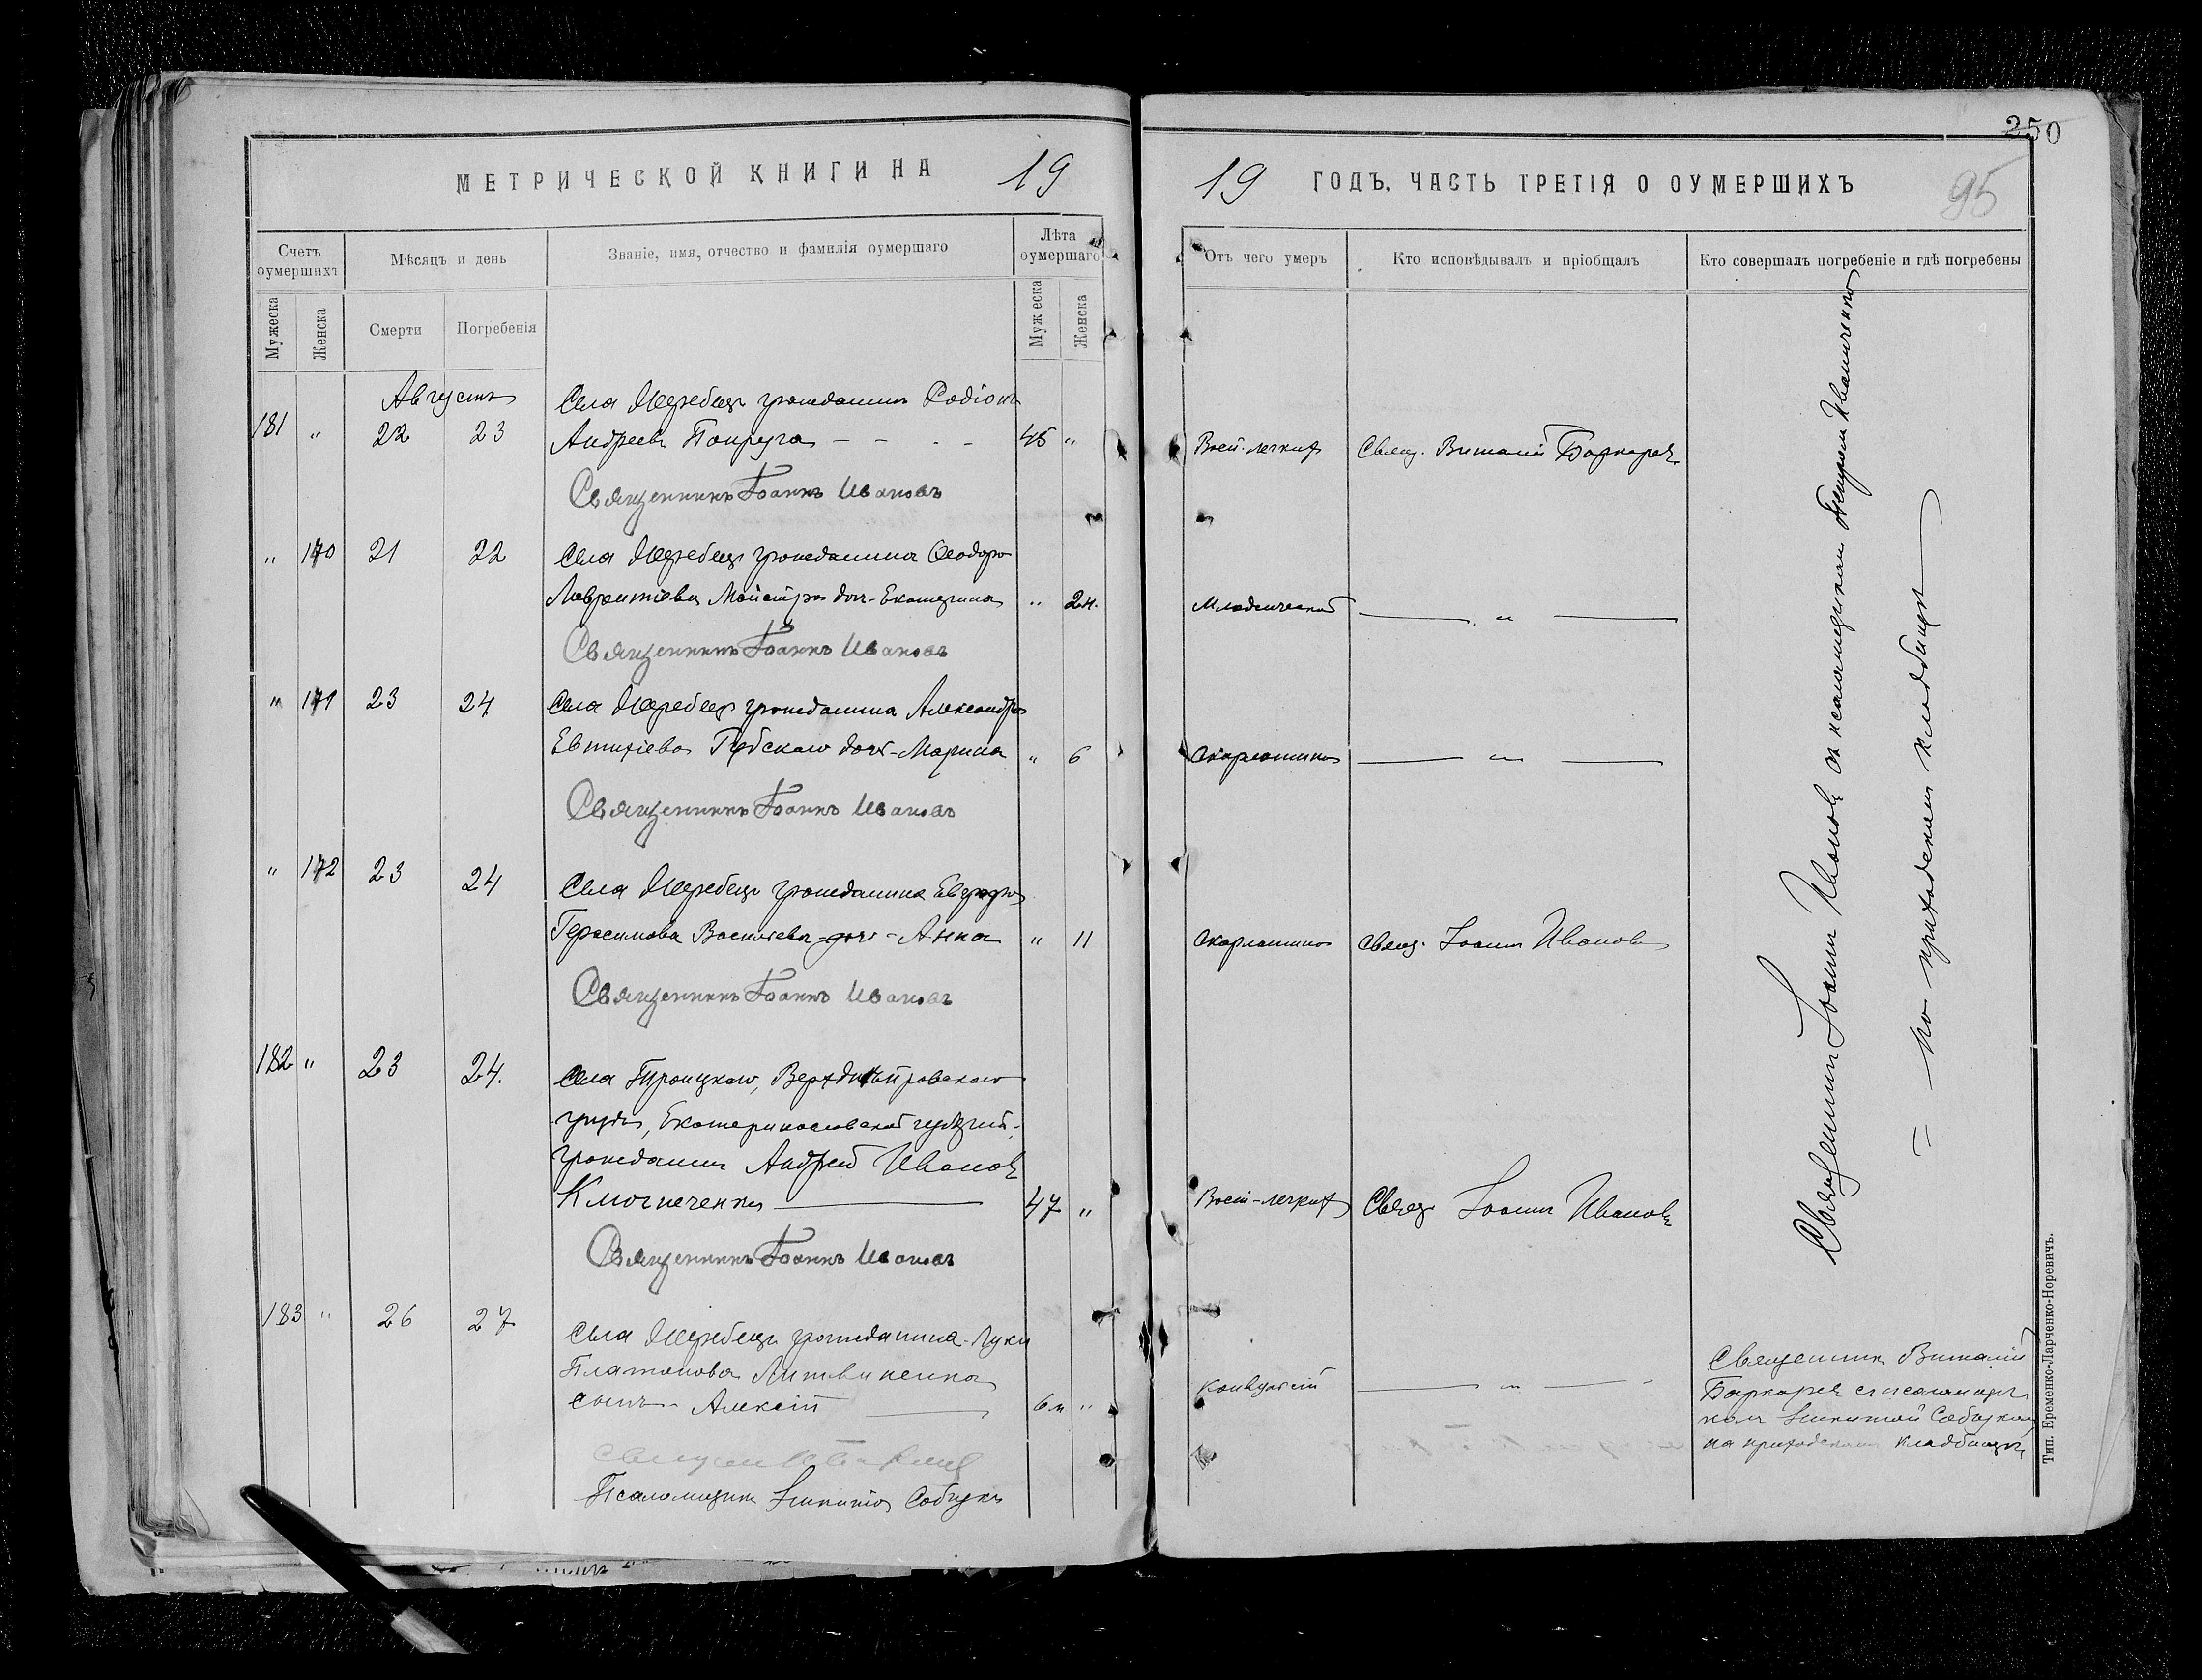 250
МЕТРИЧЕСКОЙ КНИГИ НА 19
19 ГОДЪ, ЧАСТЬ ТРЕТІЯ О ОУМЕРШИХЪ
95
Счетъ оумершихъ
Мѣсяцъ и день
Званіе, имя, отчество и фамилія оумершаго
Лѣта оумершаго
Мужеска
Женска
Смерти
Погребенія
Мужеска
Женска
Отъ чего умеръ
Кто исповѣдывалъ и пріобщалъ
Кто совершалъ погребеніе и гдѣ погребены
Августъ
Села Жеребецъ гражданинъ Родіонъ
181 " 22 23 Андреевъ Попруга - - - - 45 "
Восп. легкихъ
Свящ. Виталій
Священникъ Іоаннъ Ивановъ
" 170 21 22 Села Жеребецъ гражданина Ѳеодора
Лаврентіева дочь - Екатерина " 2 н.
Младенческой
— " —
Священникъ Іоаннъ Ивановъ
" 171 23 24 Села Жеребецъ гражданина Александра
Евтихіева дочь - Марина " 6
Скарлатина
— " —
Священникъ Іоаннъ Ивановъ
" 172 23 24 Села Жеребецъ гражданина
Герасимова Васильева дочь - Анна " 11
Скарлатина
Свящ. Іоаннъ Ивановъ
Священникъ Іоаннъ Ивановъ
182 " 23 24. Села Троицкаго, Верхднѣпровскаго
уѣзда, Екатеринославской губерніи,
гражданинъ Андрей Ивановъ
47 "
Восп. легкихъ
Свящ. Іоаннъ Ивановъ
Священникъ Іоаннъ Ивановъ
183 " 26 27 Села Жеребецъ гражданина - Луки
Платонова Литвиненка
сынъ - Алексій — 6 м "
Конвульсій
— " —
Псаломщикъ
Священникъ Іоаннъ Ивановъ съ псаломщикомъ Иваниченко
= на приходскомъ кладбищѣ
Священникъ Виталій
съ псаломщи-
комъ
на приходскомъ кладбищѣ
Тип. Еременко-Ларченко-Норевичъ.